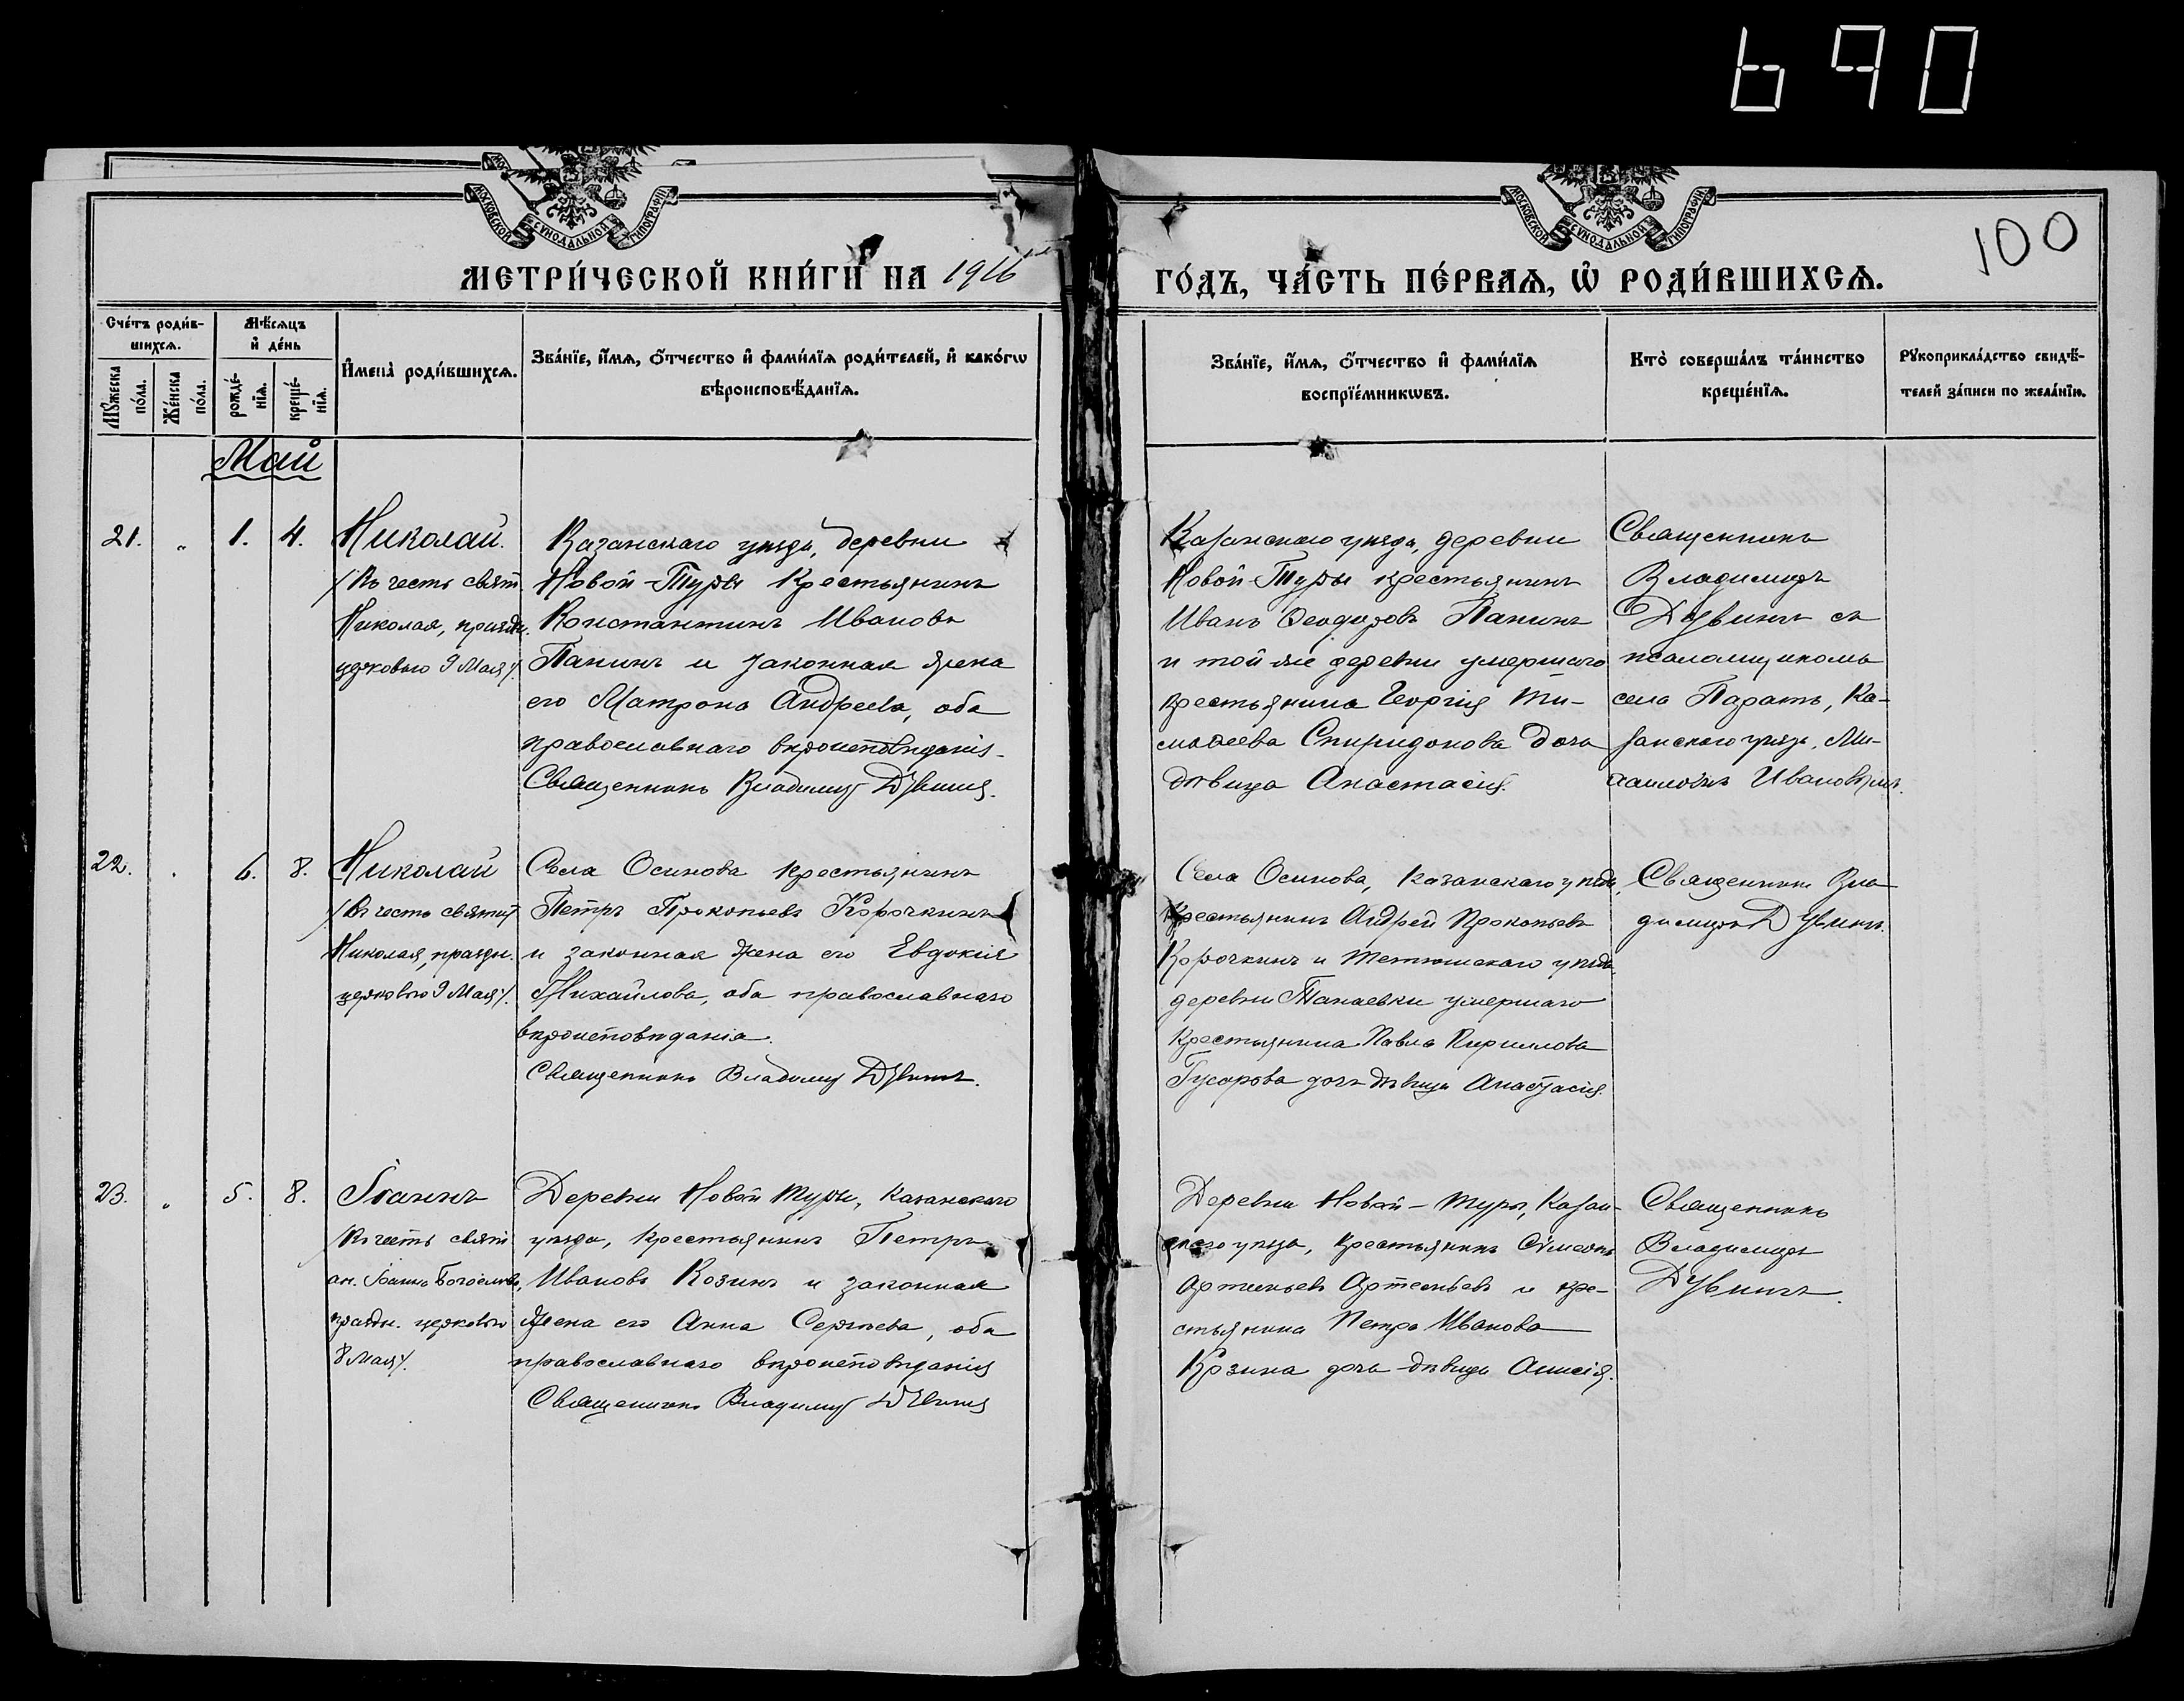 690
МОСКОВСКОЙ СѴНОДАЛЬНОЙ ТИПОГРАФІИ
МОСКОВСКОЙ СѴНОДАЛЬНОЙ ТИПОГРАФІИ
100
МЕТРИ́ЧЕСКОЙ КНИ́ГИ НА 1916
ГО́ДЪ, ЧА́СТЬ ПЕ́РВАѦ, Ѿ РОДИ́ВШИХСѦ.
Сче́тъ роди́в-
шихсѧ.
Мѣ́сѧцъ
и҆ де́нь
Мꙋ́жеска
по́ла.
Же́нска
по́ла.
рожде́-
нїѧ.
креще́-
нїѧ.
И҆мена̀ роди́вшихсѧ.
Зва́нїе, и҆́мѧ, ѻ҆́тчество и҆ фами́лїѧ роди́телей, и҆ како́гѡ
вѣроисповѣ́данїѧ.
Зва́нїе, и҆́мѧ, ѻ҆́тчество и҆ фами́лїѧ
воспрїе́мникѡвъ.
Кто̀ соверша́лъ та́инство
креще́нїѧ.
Рꙋкоприкла́дство свидѣ́-
телей за́писи по жела́нїю.
Май
21. " 1. 4.
Николай.
/Въ честь свят.
Николая, праздн.
церковью 9 Мая/.
Казанскаго уѣзда, деревни
Новой-Туры крестьянинъ
Константинъ Ивановъ
Панинъ и законная жена
его Матрона Андреева, оба
православнаго вѣроисповѣданія.
Священникъ Владиміръ
Казанскаго уѣзда, деревни
Новой-Туры крестьянинъ
Иванъ Ѳеодоровъ Панинъ
и той же деревни умершаго
крестьянина Георгія Ти-
моѳеева Спиридонова дочь
дѣвица Анастасія.
Священникъ
Владиміръ
съ
псаломщикомъ
села Паратъ, Ка-
занскаго уѣзда, Ми-
хаиломъ Ивановымъ.
22. " 6. 8.
Николай
/Въ честь святит.
Николая, праздн.
церковью 9 Мая/.
Села Осинова крестьянинъ
Петръ Прокопьевъ Корочкинъ
и законная жена его Евдокія
Михайлова, оба православнаго
вѣроисповѣданія.
Священникъ Владиміръ
Села Осинова, Казанскаго уѣзда,
крестьянинъ Андрей Прокопьевъ
Корочкинъ и Тетюшскаго уѣзда
деревни Танаевки умершаго
крестьянина Павла Кириллова
Гусарова дочь дѣвица Анастасія.
Священникъ Вла-
диміръ
23. " 5. 8.
Іоаннъ
/Въ честь свят.
ап. Іоанна Богослова,
праздн. церковью
8 Мая/.
Деревни Новой Туры, Казанскаго
уѣзда, крестьянинъ Петръ
Ивановъ Козинъ и законная
жена его Анна Сергѣева, оба
православнаго вѣроисповѣданія
Священникъ Владиміръ
Деревни Новой-Туры, Казан-
скаго уѣзда, крестьянинъ Сѵмеонъ
Артемьевъ Артемьевъ и кре-
стьянина Петра Иванова
Козина дочь дѣвица
Священникъ
Владиміръ